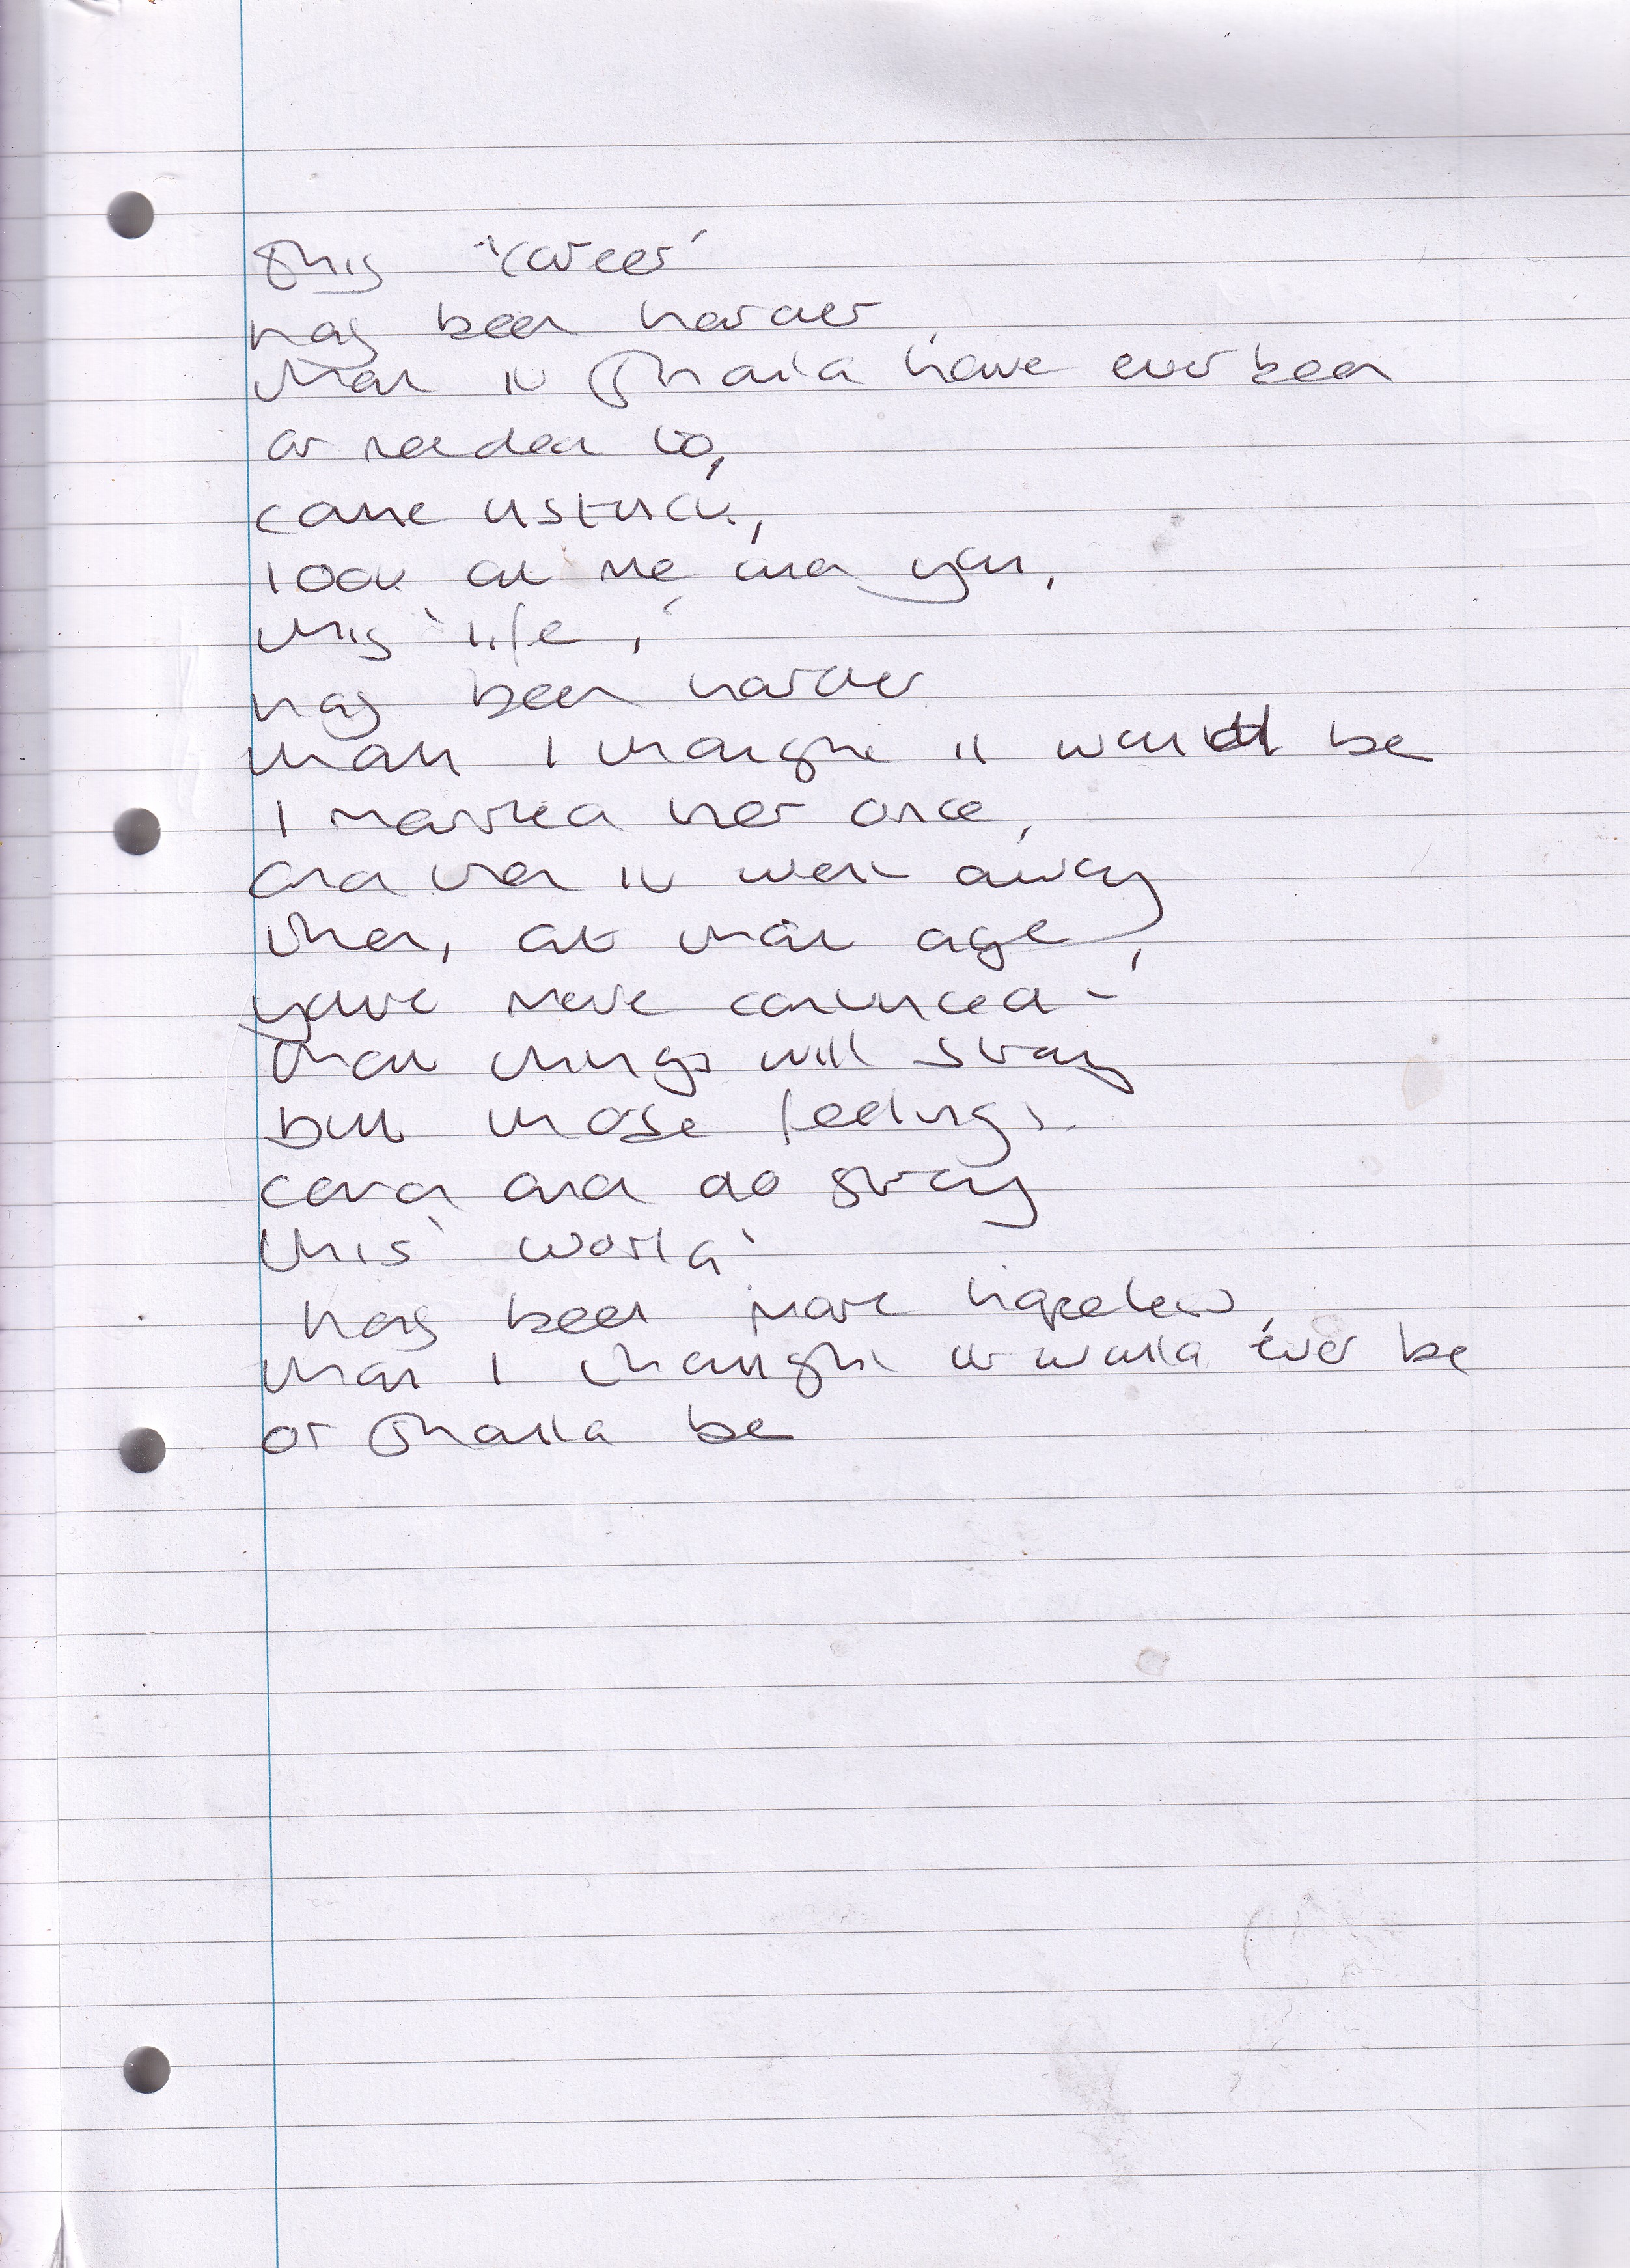 This 'career'
has been harder
than it should have ever been
or needed to,
come
look at me and you,
this 'life',
has been harder
than I thought it would be
I married her once,
and then it went away
then, at that age,
you're more convinced -
that things will stay
but those feelings
can and do stray
this 'world'
has been more hopeless,
than I thought it would ever be
or should be